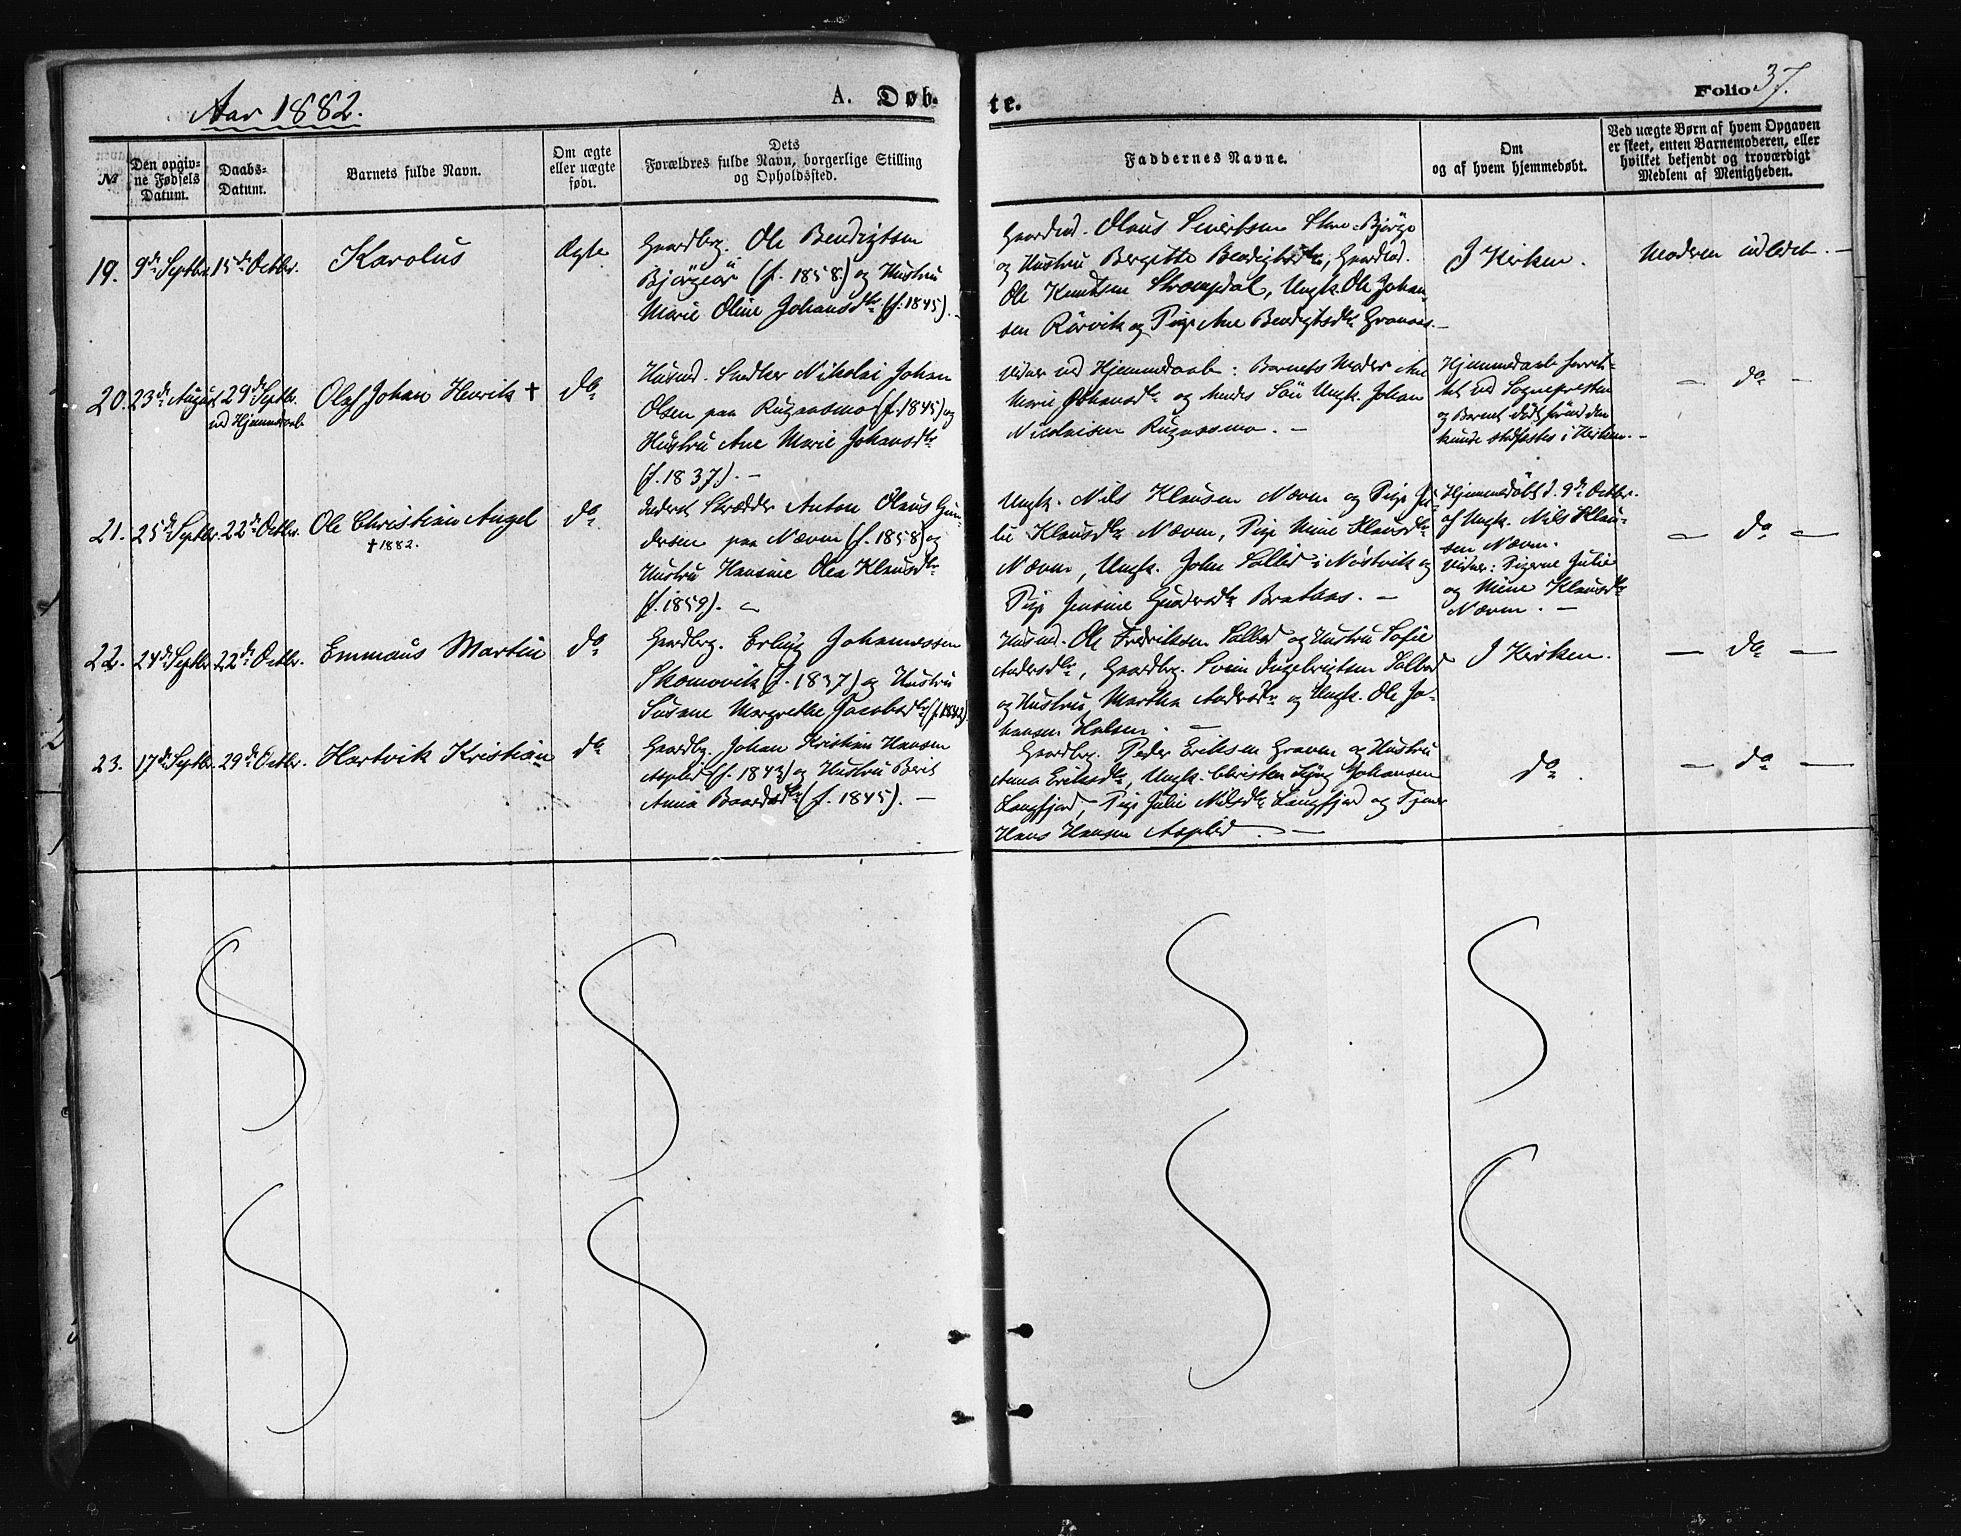 Aar 1882.
A. Døb-
te.
Folio 37.
№
Den opgiv-
ne Fødsels
Datum.
Daabs-
Datum.
Barnets fulde Navn.
Om ægte
eller uægte
født.
Dets
Forældres fulde Navn, borgerlige Stilling
og Opholdssted.
Faddernes Navne.
Om
og af hvem hjemmedøbt.
Ved uægte Børn af hvem Opgaven
er skeet, enten Barnemoderen, eller
hvilket bekjendt og troværdigt
Medlem af Menigheden.
19.
9de Septbr.
15de Octbr.
Karolus
Ægte
Gaardbrg. Ole Bendigtsen
(f. 1858) og Hustru
Marie Oline Johansdtr (f. 1845). –
Gaardmd. Olaus Sivertsen
og Hustru Bergitte Bendigtsdtr, Gaardmd.
Ole Knudtsen Strømdal, Ungk. Ole Johan-
sen Rørvik og Pige Ane Bendigtsdtr –
I Kirken.
Moderen indledet. –
20.
23de August
29de Septbr.
ved Hjemmedaab
Olaf Johan Henrik †
do
Husmd. Nikolai Johan
Olsen paa Rugaasmo (f. 1845) og
Hustru Ane Marie Johansdtr
(f. 1837). –
Vidner ved Hjemmedaab: Barnets Moder Ane
Marie Johansdtr og hendes Søn Ungk. Johan
Nicolaisen Rugaasmo. –
Hjemmedaab forret-
tet ved Sognepresten
og Barnet døde førend den
kunde stadfestes i Kirken. –
– do –
21.
25de Septbr.
22de Octbr.
Ole Christian Angel
† 1882.
do
Inderst Skrædder Anton Olaus Gun-
dersen paa Nævern (f. 1858) og
Hustru Hansine Olea Klausdtr
(f. 1859). –
Ungk. Nils Klausen Nævern og Pige Ju-
lie Klausdtr Nævern, Pige Mine Klausdtr
Nævern, Ungk. John Solled i Nøstvik og
Pige Jensine Brataas. –
Hjemmedøbt d. 9de Octbr.
af Ungk. Nils Klau-
sen Nævern.
Vidner: Pigerne Julie
og Mine Klausdtr
Nævern. –
– do –
22.
24de Septbr.
22de Octbr.
Emmaus Martin
do
Gaardbrg. Johannessen
Skomovik (f. 1837) og Hustru
Susane Margrethe Jacobsdtr (f. 1842).
Husmd. Ole Fredriksen Solled og Hustru Sofie
Andersdtr, Gaardbrg. Svein Ingebrigtsen Solled
og Hustru Martha Andersdtr og Ungk. Ole Jo-
hansen Holmen. –
I Kirken.
– do –
23.
17de Septbr.
29de Octbr.
Hartvik Kristian
do
Gaardbrg. Johan Kristian Hansen
Asplid (f. 1843) og Hustru Berit
Anna Baardsdtr (f. 1845). –
Gaardbrg. Peder Eriksen Graven og Hustru
Anna Eriksdtr, Ungk. Christen Johansen
Langfjord, Pige Julie Nilsdtr Langfjord og Tjener
Hans Hansen Asplid. –
do.
– do –